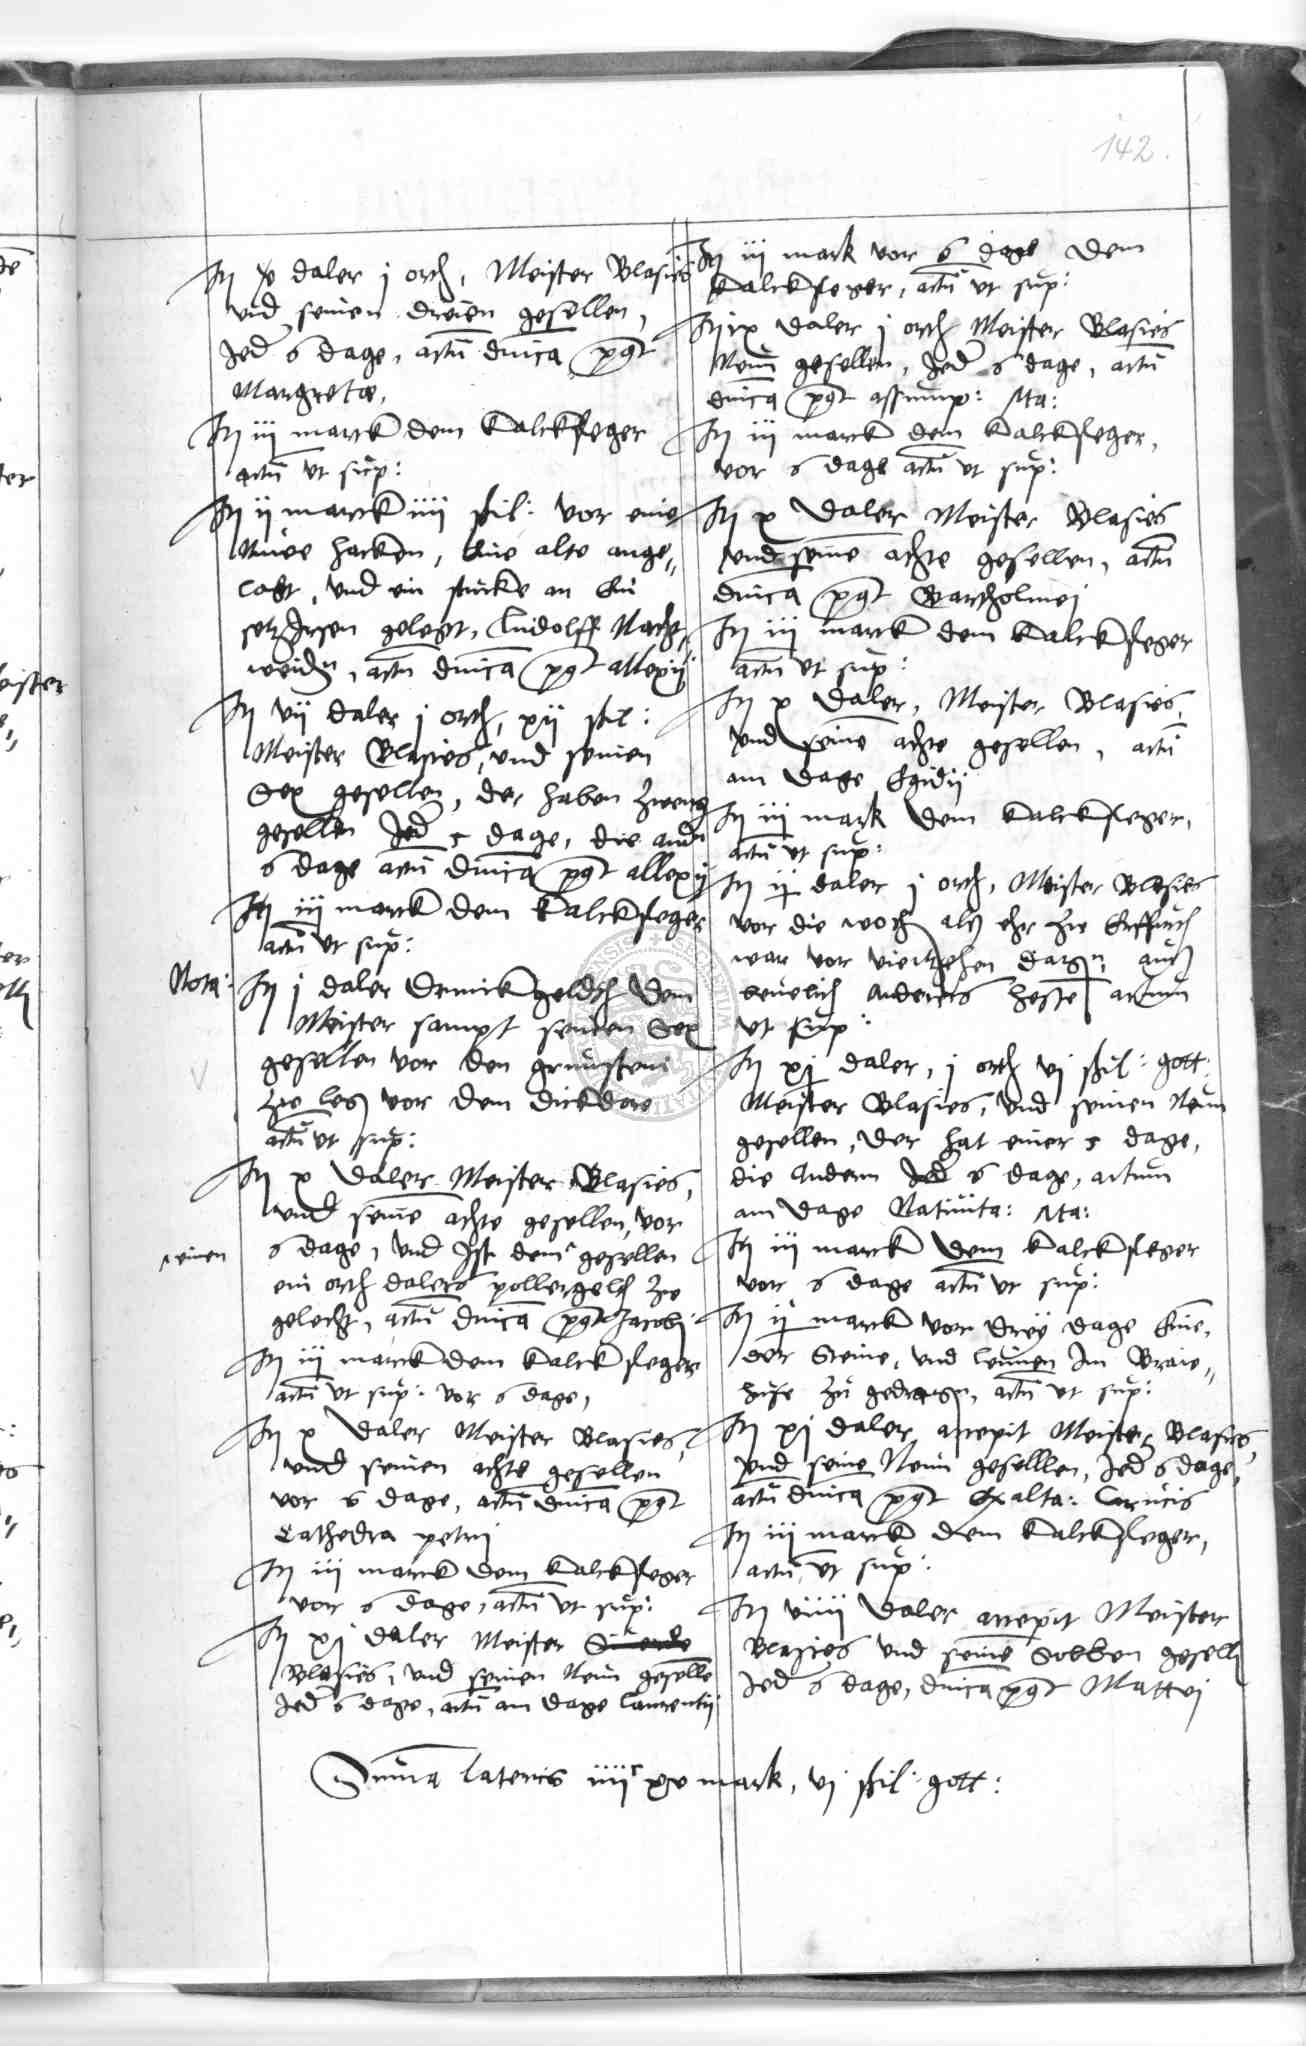 142.
It v daler j orth, Meister Blasies
vnd seinen dreien gesellen,
Jed 6 dage, actu dnica post
Margrete,
It iij marck dem kalckfleger
actu vt sup:
It ij marck iiii ßil: vor eine
Nuee hacken, eine alte ange„
lagt, vnd ein stucke an ein
setzJrsen gelegt, Ludolff Nacht„
weidn, actu dnica post allexij
It vij daler j orth, xij ßil:
Meister Blasies, vnd seinen
Sex gesellen, der haben zweny
gesellen Jed 5 dage, die andn
6 dage actu dnica post allexij
It iij marck dem kalckfleger
actu vt sup:
Nota: It j daler drinckgeldth dem
Meister sampt seinen Sex
gesellen vor den grunstein
zu leg vor dem dickdore
actu vt sup:
It x daler Meister Blasies,
vnd seine achte gesellen, vor
6 dage, vnd Jst dem gesellen
einen
ein orth dalers pollergelth zu
gelecht, actu dnica post Jacobi
It iij marck dem kalckfleger
actu vt sup: vor 6 dage,
It x daler Meister Blasies,
vnd seinen achte gesellen
vor 6 dage, actu dnica post
Cathedra petri
It iij marck dem kalckfleger
vor 6 dage, actu vt sup:
It xj daler Meister
Blasies, vnd seinen Neun geselle
Jed 6 dage, actu am dage laurentij
It iij mark vor 6 dage dem
kalckfleger, actu vt sup:
It ix daler j orth Meister Blasies
Neun gesellen, Jed 6 dage, actu
dnica post assump: Ma:
It iij marck dem kalckfleger,
vor 6 dage actu vt sup:
It x daler Meister Blasies
vnd seine achte gesellen, actu
dnica post Bartholmei
It iij marck dem kalckfleger
actu vt sup:
It x daler, Meister Blasies,
vnd seine achte gesellen, actu
am dage Egidij
It iij mark dem kalckfleger,
actu vt sup:
It ij daler j orth, Meister Blesies
vor die woch als ehr zu Erffurth
war vor viertzehen dagn, auch
Andereis heste actum
vt sup:
It xj daler, j orth vj ßil: gott:
Meister Blasies, vnd seinen Neun
gesellen, der hat einer 5 dage,
die andern Jed 6 dage, actum
am dage Natiuita: Ma:
It iij marck dem kalckfleger
vor 6 dage actu vt sup:
It ij marck vor drey dage
der Steine, vnd leimen Jm Braw„
huse zu gedragn, actu vt sup:
It xj daler accepit Meister Blasies,
vnd seine Neun geselllen, Jed 6 dage,
actu dnica post Exalta: Crucis
It iij marck dem kalckfleger,
actu vt sup:
It viiii daler accepit Meister
Blasies vnd seine Sebben gesell
Jed 6 dage, dnica post Mattei
Suma lateris iiiic xv mark, vj ßil: gott: